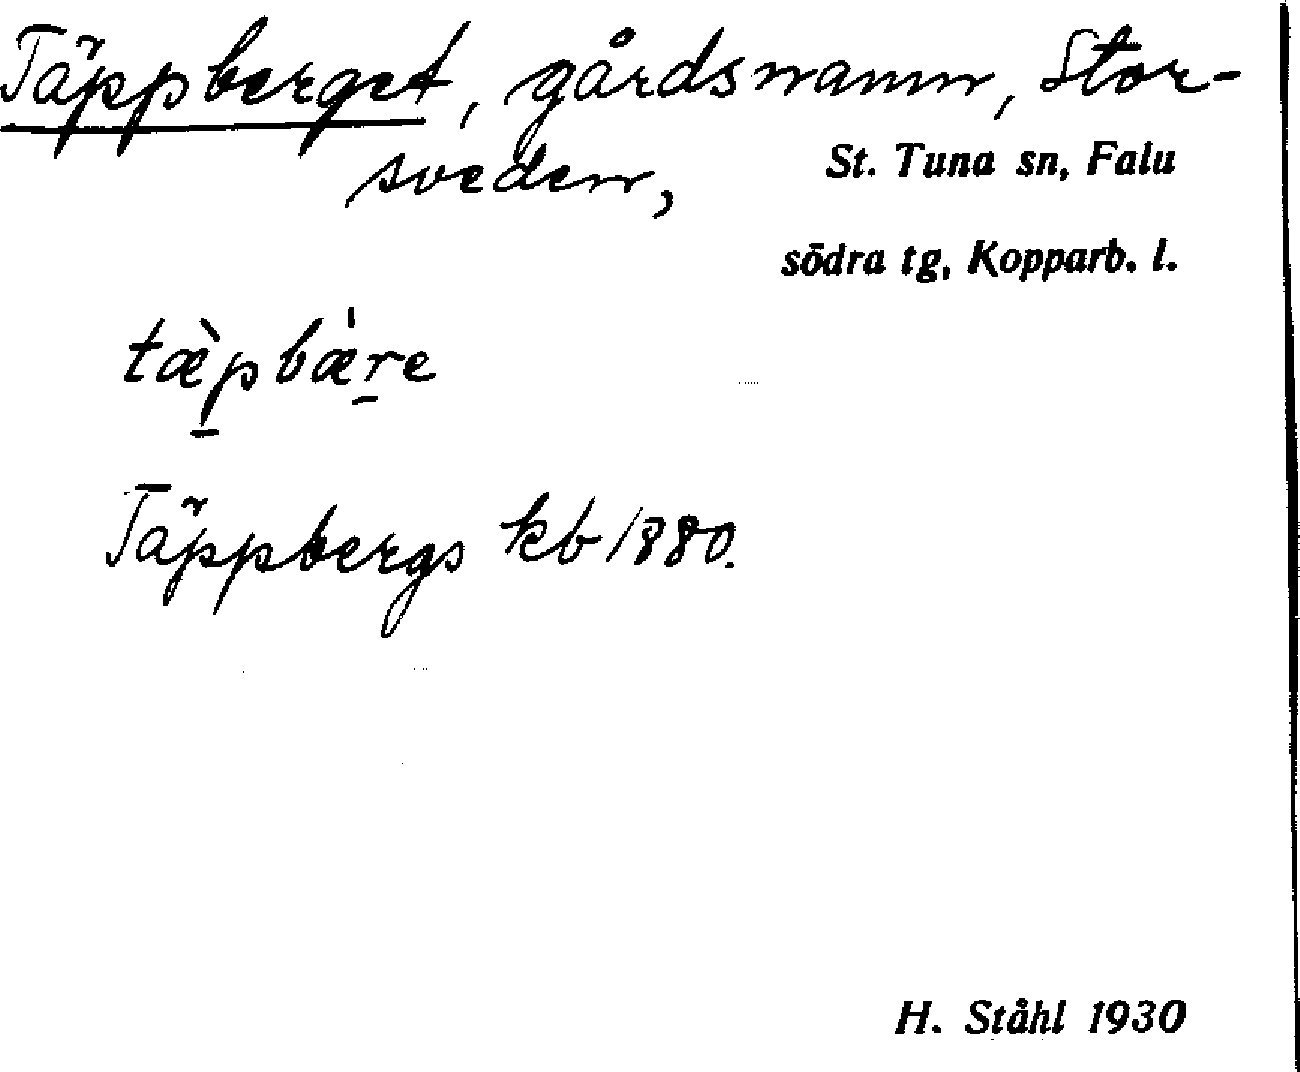 Täppberget, gårdsnamn, Stor-
sveden,
St. Tuna sn, Falu
södra tg, Kopparb. l.
tæ̀p̠bæ̀r̠e
Täppbergs kb 1880.
H. Ståhl 1930